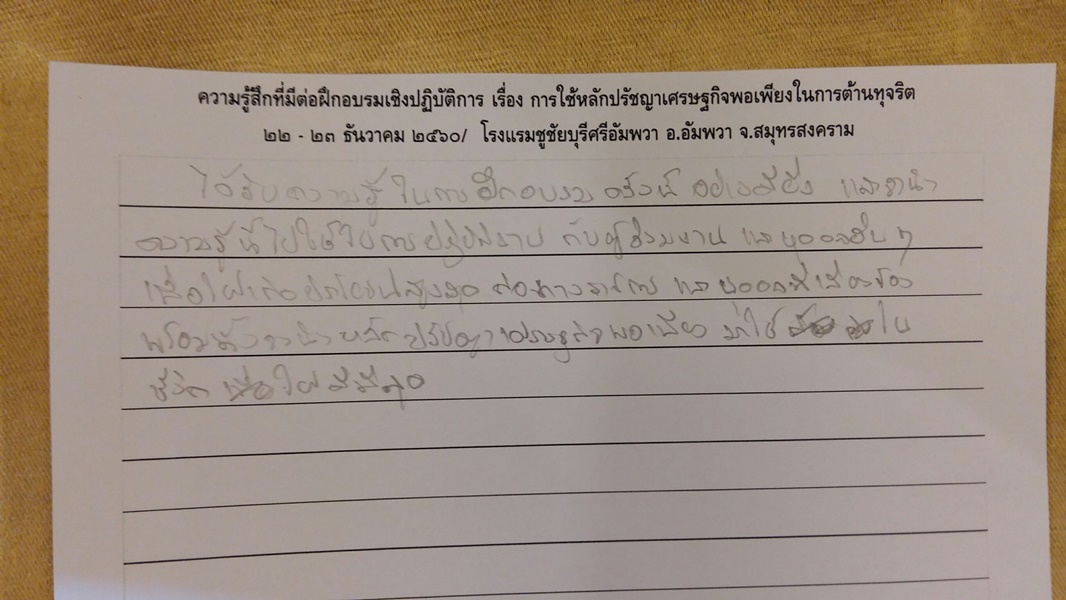 ความรู้สึกที่มีต่อฝึกอบรมเชิงปฏิบัติการ เรื่อง การใช้หลักปรัชญาเศรษฐกิจพอเพียงในการต้านทุจริต
๒๒ - ๒๓ ธันวาคม ๒๕๖๐/ โรงแรมชูชัยบุรีศรีอัมพวา อ.อัมพวา จ.สมุทรสงคราม
ได้รับความรู้ในการฝึกอบรม ครั้งนี้ อย่างดียิ่ง และจะนำ
ความรู้นี้ไปใช้ในการปฏิบัติงาน กับผู้ร่วมงาน และบุคคลอื่น ๆ
เพื่อให้เกิดประโยชน์สูงสุด ต่อทางราชการ และบุคคลที่เกี่ยวข้อง
พร้อมทั้งจะนำหลักปรัชญาเศรษฐกิจพอเพียง มาใช้ ใน
ชีวิต ให้ดีที่สุด